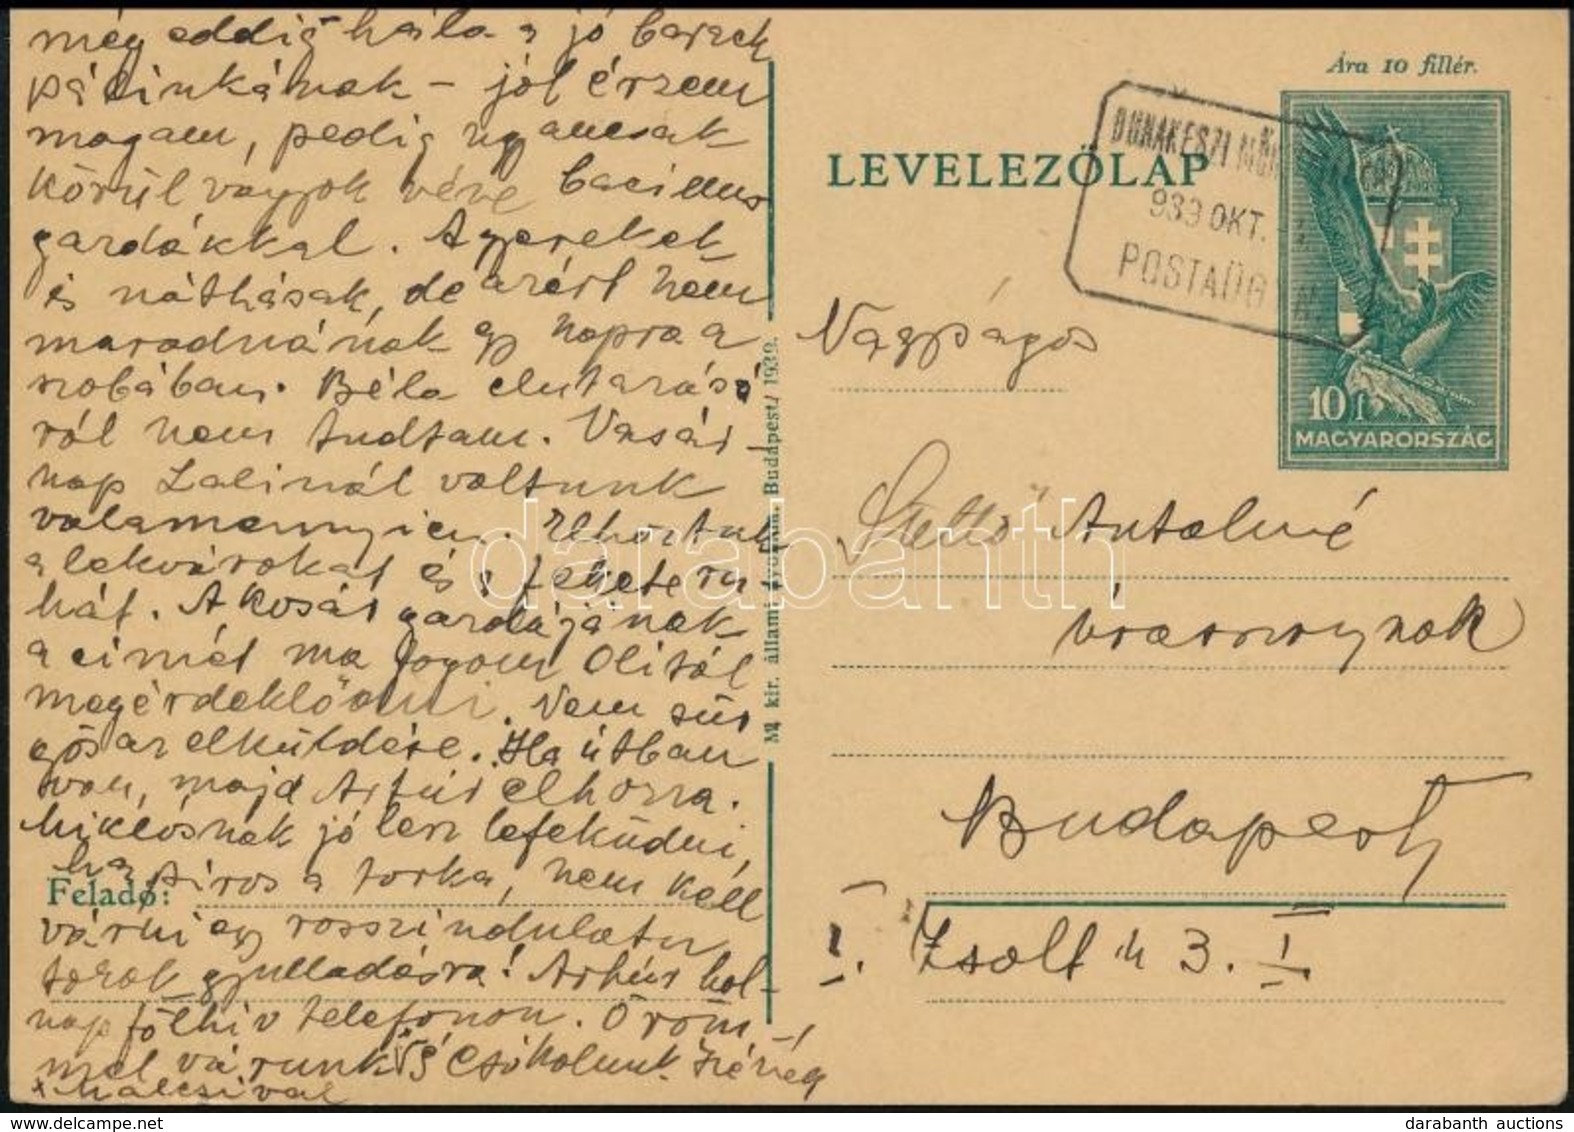 még eddig hála a jó barack
pálinkának – jól érzem
magam, pedig ugyancsak
körül vagyok véve bacillus
gardákkal. A gyerekek
is náthásak, de azért nem
maradnának egy napra a
szobában. Béla elutazásá
ról nem tudtam. Vasár-
nap Lalinál voltunk
valamennyien. Elhoztuk
a lekvárokat és a fehérru
hát. A kosár gazdájának
a címét ma fogom Olitól
megérdeklődni. Nem sür
gős az elküldése. Ha útban
van, majd Artúr elhozza.
Miklósnak jó lesz lefeküdni,
ha piros a torka, nem kell
várni egy rosszindulatu
torok gyulladásra! Arthúr hol-
nap fölhív telefonon. Öröm
mel várunk és csókolunk.
Malcsival
Feladó:
M. kir. állami nyomda. Budapest 1939.
Ára 10 fillér.
LEVELEZŐLAP
DUNAKESZI MŰH
939 OKT.
POSTAÜGYN
10 f
MAGYARORSZÁG
Nagyságos
Szettő Antalné
úrasszonynak
Budapest
I. Zsolt u 3. I.
darabanth
www.delcampe.net
darabanth auctions